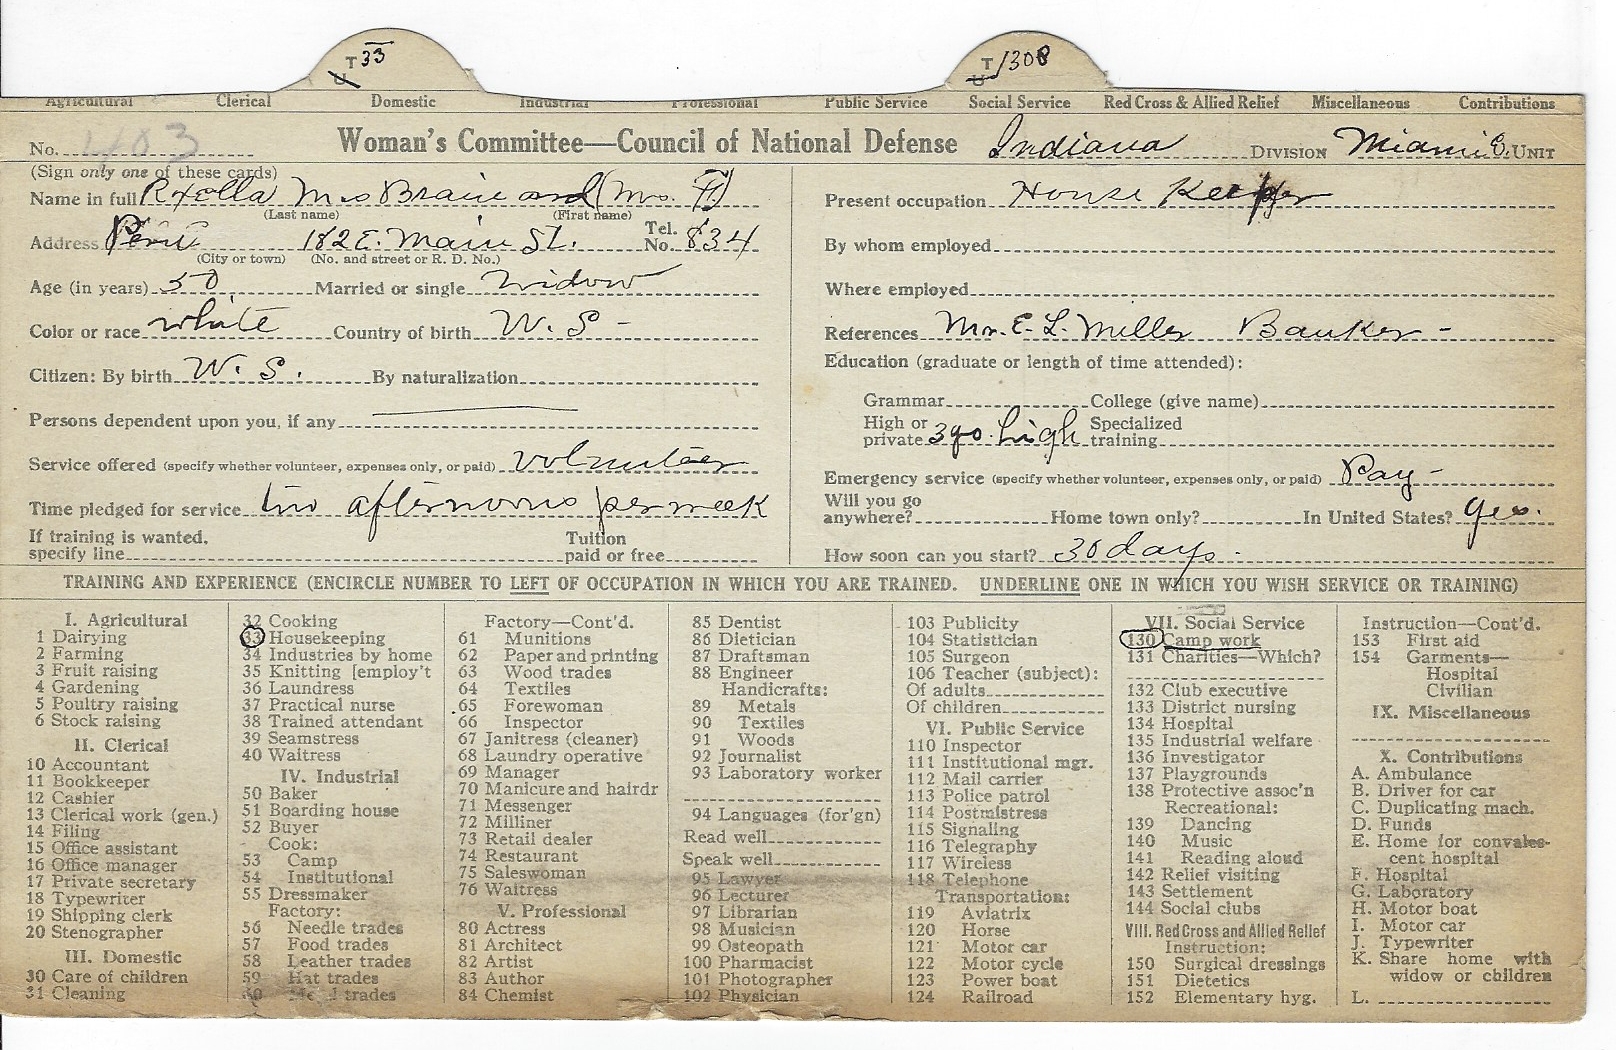 T 33 T 1308
U U
Agricultural Clerical Domestic Industrial Professional Public Service Social Service Red Cross & Allied Relief Miscellaneous Contributions
No. 403 Woman's Committee—Council of National Defense Indiana DIVISION Miami Co. UNIT
(Sign only one of these cards)
Name in full Mrs (Mrs.
(Last name) (First name)
Address Peru 182 E. Main St. Tel. No. 834
(City or town) (No. and street or R. D. No.)
Age (in years) 50 Married or single Widow
Color or race white Country of birth U. S -
Citizen: By birth U. S. By naturalization
Persons dependent upon you, if any
Service offered (specify whether volunteer, expenses only, or paid) volunteer
Time pledged for service two afternoons per week
If training is wanted, specify line Tuition paid or free
Present occupation House Keeper
By whom employed
Where employed
References Mr. E. L. Miller Banker -
Education (graduate or length of time attended):
Grammar College (give name)
High or private 3 yrs. high Specialized training
Emergency service (specify whether volunteer, expenses only, or paid) Pay -
Will you go anywhere? Home town only? In United States? yes.
How soon can you start? 30 days.
TRAINING AND EXPERIENCE (ENCIRCLE NUMBER TO LEFT OF OCCUPATION IN WHICH YOU ARE TRAINED. UNDERLINE ONE IN WHICH YOU WISH SERVICE OR TRAINING)
I. Agricultural
1 Dairying
2 Farming
3 Fruit raising
4 Gardening
5 Poultry raising
6 Stock raising
II. Clerical
10 Accountant
11 Bookkeeper
12 Cashier
13 Clerical work (gen.)
14 Filing
15 Office assistant
16 Office manager
17 Private secretary
18 Typewriter
19 Shipping clerk
20 Stenographer
III. Domestic
30 Care of children
31 Cleaning
32 Cooking
33 Housekeeping
34 Industries by home
35 Knitting [employ't
36 Laundress
37 Practical nurse
38 Trained attendant
39 Seamstress
40 Waitress
IV. Industrial
50 Baker
51 Boarding house
52 Buyer
Cook:
53 Camp
54 Institutional
55 Dressmaker
Factory:
56 Needle trades
57 Food trades
58 Leather trades
59 Hat trades
60 Metal trades
Factory—Cont'd.
61 Munitions
62 Paper and printing
63 Wood trades
64 Textiles
65 Forewoman
66 Inspector
67 Janitress (cleaner)
68 Laundry operative
69 Manager
70 Manicure and hairdr
71 Messenger
72 Milliner
73 Retail dealer
74 Restaurant
75 Saleswoman
76 Waitress
V. Professional
80 Actress
81 Architect
82 Artist
83 Author
84 Chemist
85 Dentist
86 Dietician
87 Draftsman
88 Engineer
Handicrafts:
89 Metals
90 Textiles
91 Woods
92 Journalist
93 Laboratory worker
94 Languages (for'gn)
Read well
Speak well
95 Lawyer
96 Lecturer
97 Librarian
98 Musician
99 Osteopath
100 Pharmacist
101 Photographer
102 Physician
103 Publicity
104 Statistician
105 Surgeon
106 Teacher (subject):
Of adults
Of children
VI. Public Service
110 Inspector
111 Institutional mgr.
112 Mail carrier
113 Police patrol
114 Postmistress
115 Signaling
116 Telegraphy
117 Wireless
118 Telephone
Transportation:
119 Aviatrix
120 Horse
121 Motor car
122 Motor cycle
123 Power boat
124 Railroad
VII. Social Service
130 Camp work
131 Charities—Which?
132 Club executive
133 District nursing
134 Hospital
135 Industrial welfare
136 Investigator
137 Playgrounds
138 Protective assoc'n
Recreational:
139 Dancing
140 Music
141 Reading aloud
142 Relief visiting
143 Settlement
144 Social clubs
VIII. Red Cross and Allied Relief
Instruction:
150 Surgical dressings
151 Dietetics
152 Elementary hyg.
Instruction—Cont'd.
153 First aid
154 Garments—
Hospital
Civilian
IX. Miscellaneous
X. Contributions
A. Ambulance
B. Driver for car
C. Duplicating mach.
D. Funds
E. Home for convales-
cent hospital
F. Hospital
G. Laboratory
H. Motor boat
I. Motor car
J. Typewriter
K. Share home with
widow or children
L.